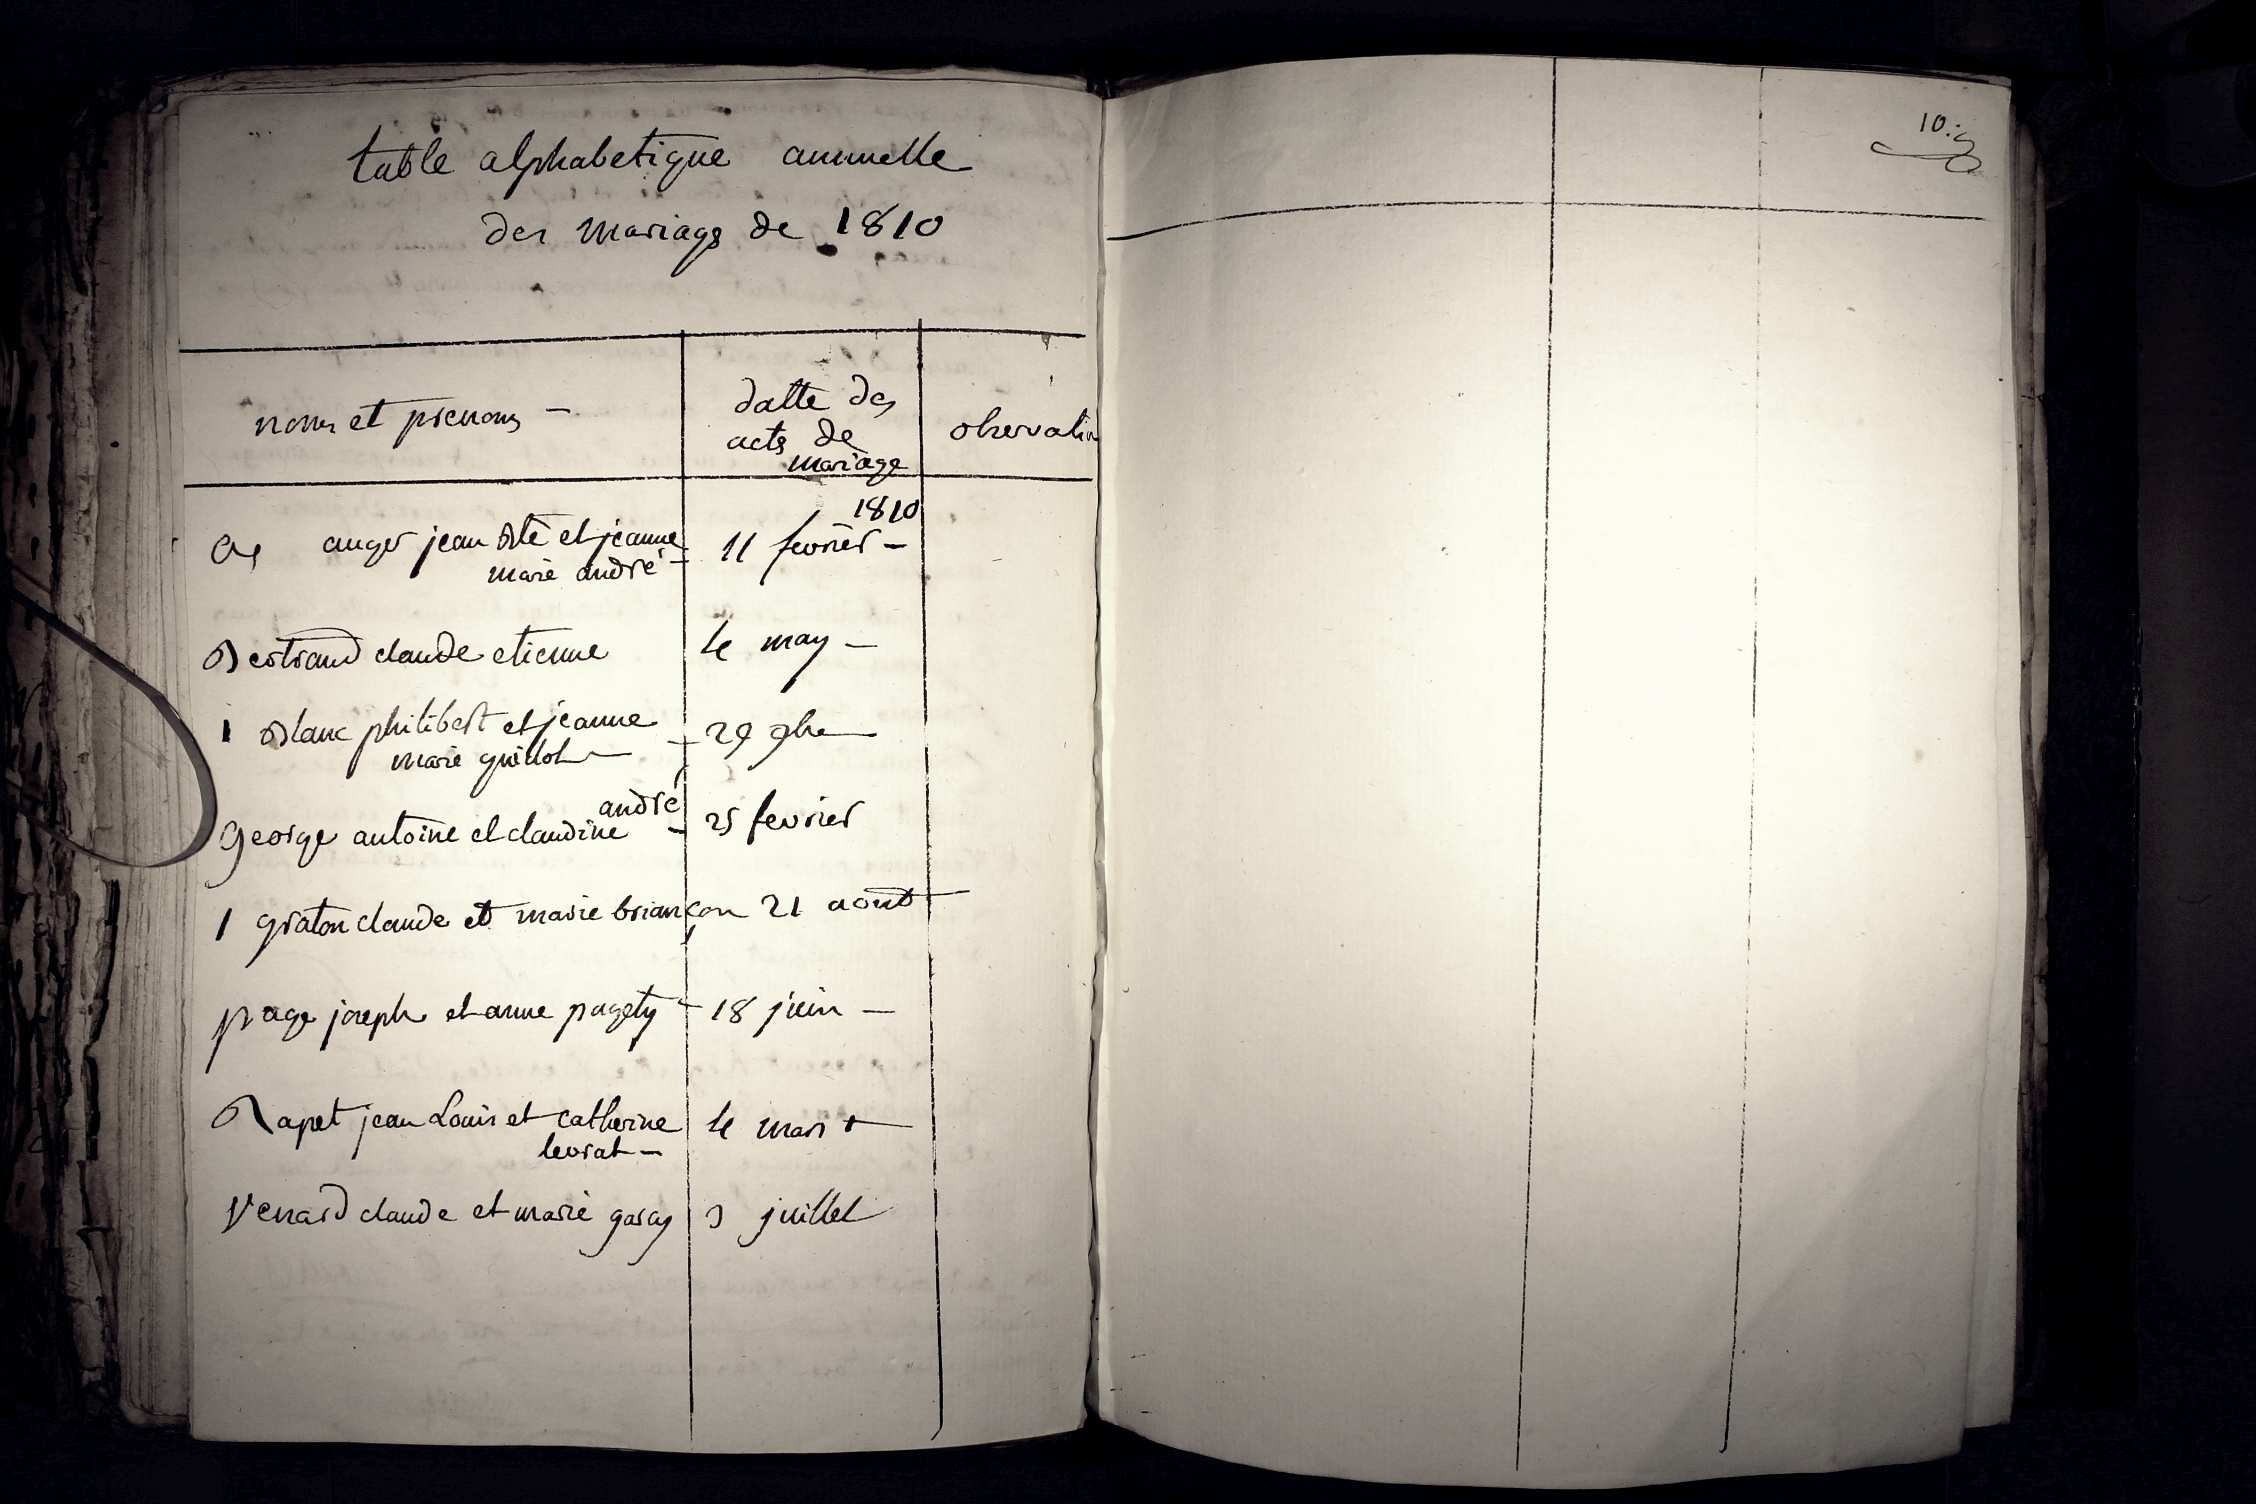 table alphabetique annuelle
des mariags de 1810
noms et prenoms -
datte des
acts de
mariage
observation
1810
auger jean Bte et jeanne
marie andré -
11 fevrier -
Bertrand claude etienne
le may -
1 Blanc philibert et jeanne
marie guillot -
29 9bre
andré
george antoine et claudine -
25 fevrier
1 graton claude et marie briançon 21 aout
page joseph et anne pagety - 18 juin -
Rapet jean Louis et catherine
levrat -
le mars
Venard claude et marie garcy
3 juillet
10